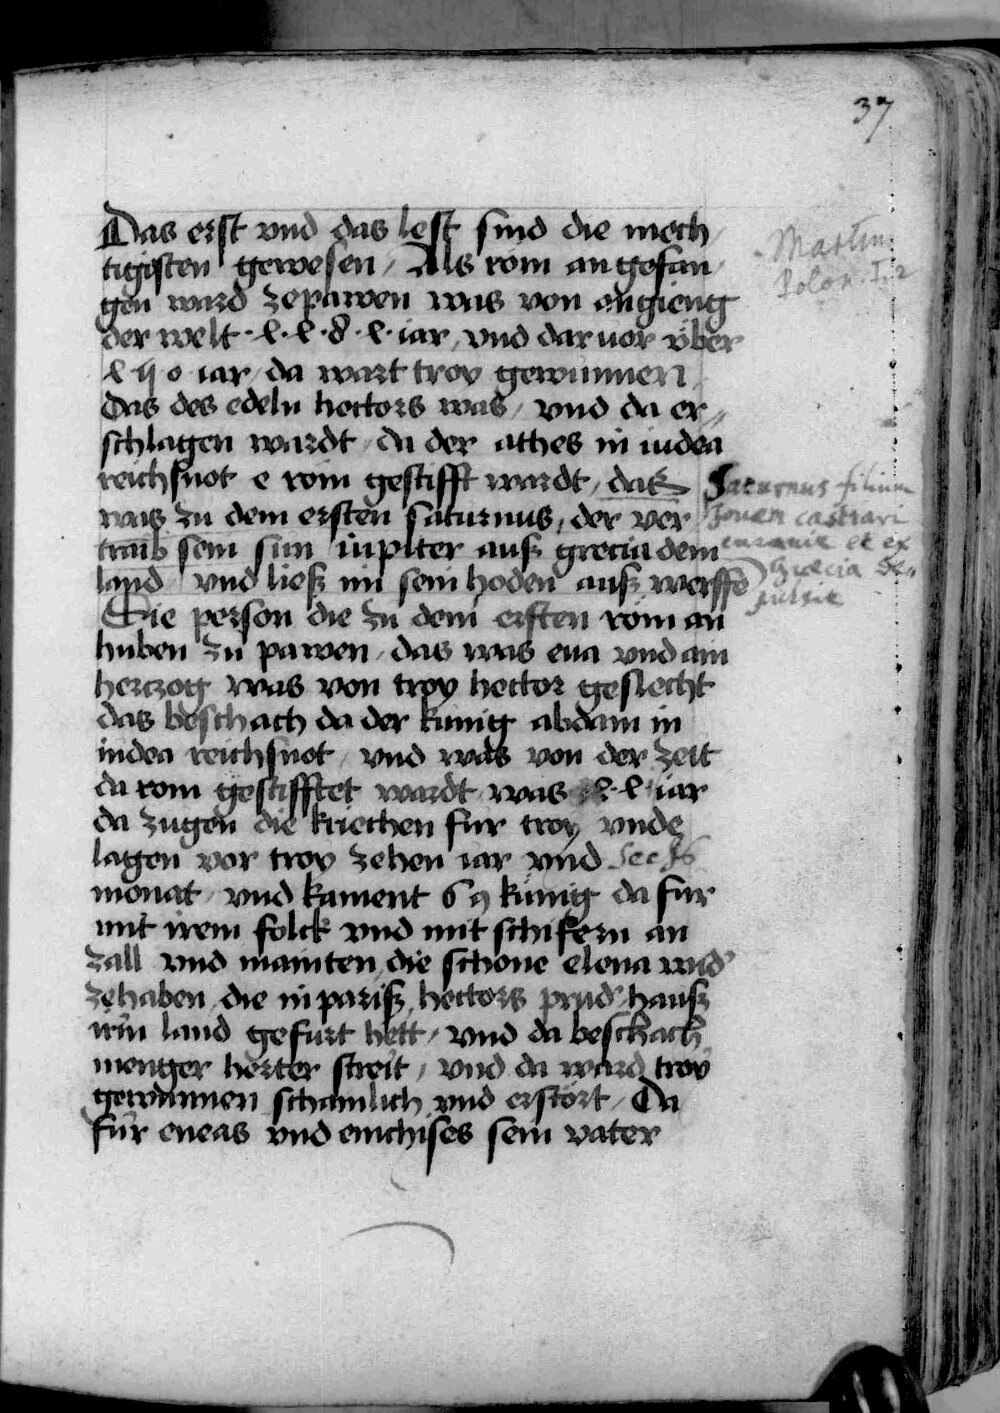 37
Das erst vnd das lest sind die mech
tigisten gewesen / Als rom an gefan
gen ward zepawen was von angieng
der welt · l · l · 8 · l · iar / vnd dar vor vber
l ij o iar / da wart troy gewunnen
das des edeln hectors was / vnd da er
schlagen wardt / da der athes in iudea
reichsnot e rom gestifft wardt / das
was zu dem ersten saturnus / der ver
traib sein sun iupiter auß grecia dem
land / vnd ließ im sein hoden auß werffē
Die person die zu dem ersten rom an
huben zu pawen / das was ena vnd am
herczog was von troy hector geslecht
das beschach da der kunig abdam in
iudea reichsnot / vnd was von der zeit
da rom gestifftet wardt was l · l · iar
da zugen die kriechen fur troy vnde
lagen vor troy zehen iar vnd sechs
monat / vnd kament 69 kunig da fur
mit irem folck vnd mit schifern an
zall vnd mainten die schone elena wid'
zehaben / die in pariß hectors prud' hauß
irm land gefurt hett / vnd da beschach
menger herter streit / vnd da ward troy
gewunnen schamlich vnd erstort / Da
fur eneas vnd enchises sein vater
Martin
Polon. I. 2
Saturnus filium
Jovem castrari
et ex
Græcia